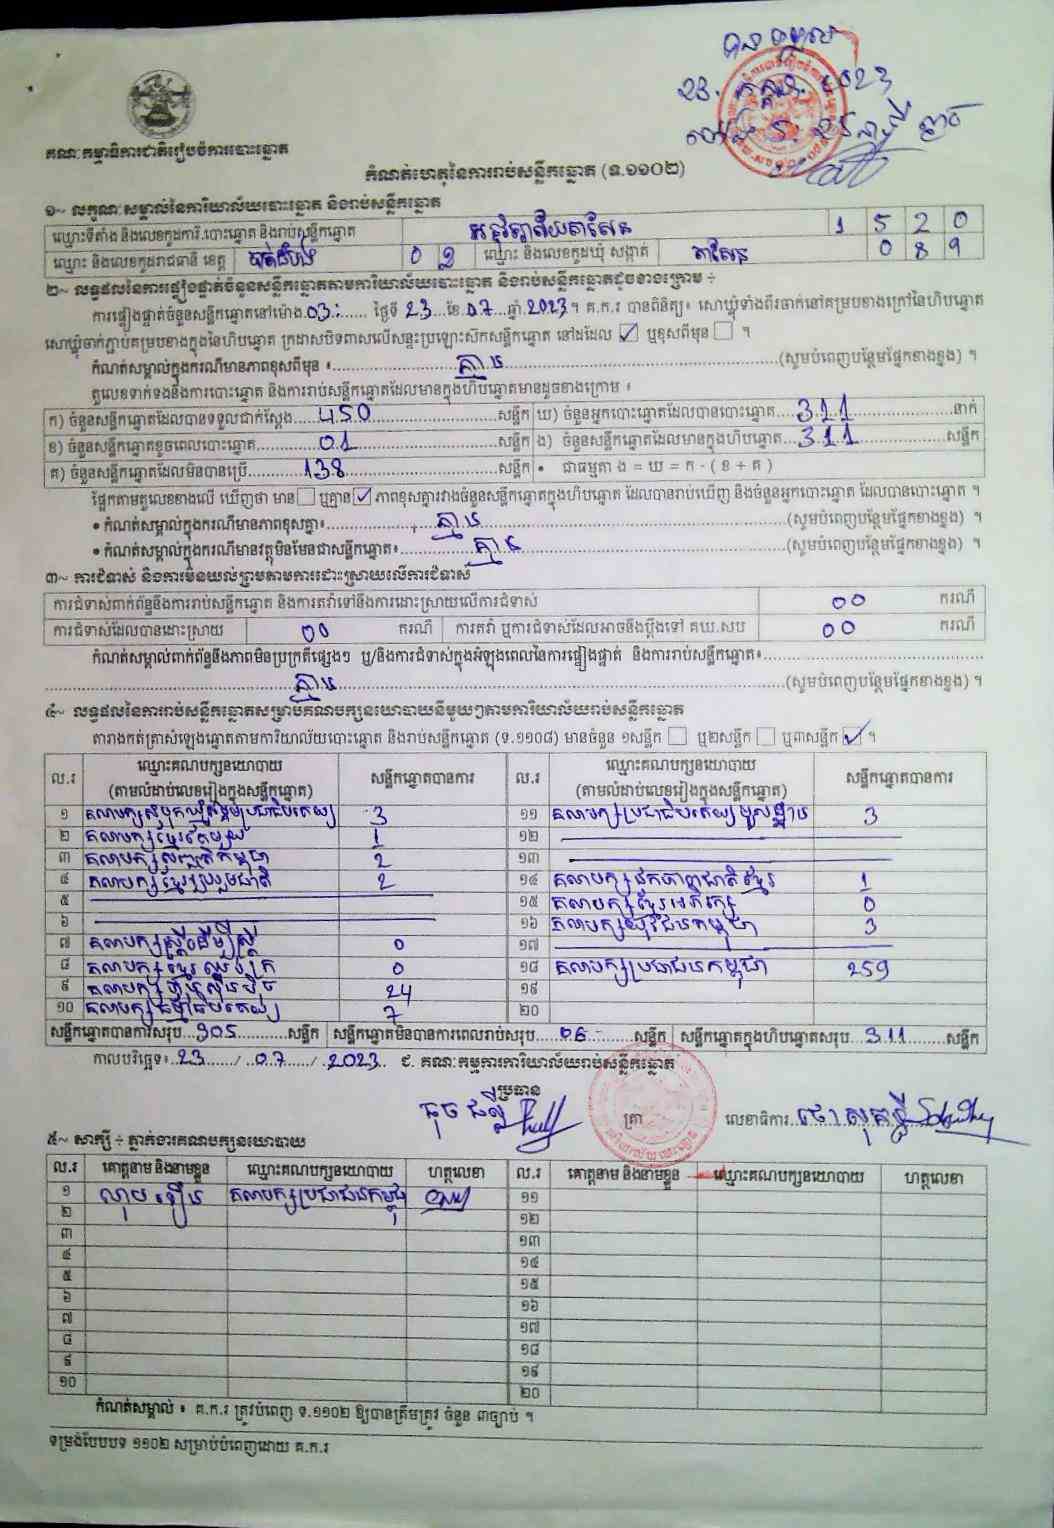 បានទទួល
23. កក្កដា. 2023
គណៈកម្មាធិការជាតិរៀបចំការបោះឆ្នោត
កំណត់ហេតុនៃការរាប់សន្លឹកឆ្នោត (ទ.១១០២)
១~ លក្ខណៈសម្គាល់នៃការិយាល័យបោះឆ្នោត និងរាប់សន្លឹកឆ្នោត
ឈ្មោះទីតាំង និងលេខកូដការិ.បោះឆ្នោត និងរាប់សន្លឹកឆ្នោត អនុវិទ្យាល័យតាសែន 1 5 2 0
ឈ្មោះ និងលេខកូដរាជធានី ខេត្ត បាត់ដំបង 0 2 ឈ្មោះ និងលេខកូដឃុំ សង្កាត់ តាសែន 0 8 9
២~ លទ្ធផលនៃការផ្ទៀងផ្ទាត់ចំនួនសន្លឹកឆ្នោតតាមការិយាល័យបោះឆ្នោត និងរាប់សន្លឹកឆ្នោតដូចខាងក្រោម ÷
ការផ្ទៀងផ្ទាត់ចំនួនសន្លឹកឆ្នោតនៅម៉ោង.03:...... ថ្ងៃទី 23...ខែ.07...ឆ្នាំ.2023។ គ.ក.រ បានពិនិត្យ៖ សោឃ្លុំទាំងពីរចាក់នៅគម្របខាងក្រៅនៃហិបឆ្នោត
សោឃ្លុំចាក់ភ្ជាប់គម្របខាងក្នុងនៃហិបឆ្នោត ក្រដាសបិទពាសលើសន្ទះប្រឡោះស៊កសន្លឹកឆ្នោត នៅដដែល ☑ ឬខុសពីមុន ☐ ។
កំណត់សម្គាល់ក្នុងករណីមានភាពខុសពីមុន ៖ គ្មាន (សូមបំពេញបន្ថែមផ្នែកខាងខ្នង) ។
តួលេខទាក់ទងនឹងការបោះឆ្នោត និងការរាប់សន្លឹកឆ្នោតដែលមានក្នុងហិបឆ្នោតមានដូចខាងក្រោម ៖
ក) ចំនួនសន្លឹកឆ្នោតដែលបានទទួលជាក់ស្តែង 450 សន្លឹក ឃ) ចំនួនអ្នកបោះឆ្នោតដែលបានបោះឆ្នោត 311 នាក់
ខ) ចំនួនសន្លឹកឆ្នោតខូចពេលបោះឆ្នោត 01 សន្លឹក ង) ចំនួនសន្លឹកឆ្នោតដែលមានក្នុងហិបឆ្នោត 311 សន្លឹក
គ) ចំនួនសន្លឹកឆ្នោតដែលមិនបានប្រើ 138 សន្លឹក • ជាធម្មតា ង = ឃ = ក - ( ខ + គ )
ផ្អែកតាមតួលេខខាងលើ ឃើញថា មាន ☐ ឬគ្មាន ☑ ភាពខុសគ្នារវាងចំនួនសន្លឹកឆ្នោតក្នុងហិបឆ្នោត ដែលបានរាប់ឃើញ និងចំនួនអ្នកបោះឆ្នោត ដែលបានបោះឆ្នោត ។
• កំណត់សម្គាល់ក្នុងករណីមានភាពខុសគ្នា៖ គ្មាន (សូមបំពេញបន្ថែមផ្នែកខាងខ្នង) ។
• កំណត់សម្គាល់ក្នុងករណីមានវត្ថុមិនមែនជាសន្លឹកឆ្នោត៖ គ្មាន (សូមបំពេញបន្ថែមផ្នែកខាងខ្នង) ។
៣~ ការជំទាស់ និងការមិនយល់ព្រមតាមការដោះស្រាយលើការជំទាស់
ការជំទាស់ពាក់ព័ន្ធនឹងការរាប់សន្លឹកឆ្នោត និងការតវ៉ាទៅនឹងការដោះស្រាយលើការជំទាស់ 00 ករណី
ការជំទាស់ដែលបានដោះស្រាយ 00 ករណី ការតវ៉ា ឬការជំទាស់ដែលអាចនឹងប្តឹងទៅ គឃ.សប 00 ករណី
កំណត់សម្គាល់ពាក់ព័ន្ធនឹងភាពមិនប្រក្រតីផ្សេងៗ ឬ/និងការជំទាស់ក្នុងអំឡុងពេលនៃការផ្ទៀងផ្ទាត់ និងការរាប់សន្លឹកឆ្នោត៖
គ្មាន (សូមបំពេញបន្ថែមផ្នែកខាងខ្នង) ។
៤~ លទ្ធផលនៃការរាប់សន្លឹកឆ្នោតសម្រាប់គណបក្សនយោបាយនីមួយៗតាមការិយាល័យរាប់សន្លឹកឆ្នោត
តារាងកត់ត្រាសំឡេងឆ្នោតតាមការិយាល័យបោះឆ្នោត និងរាប់សន្លឹកឆ្នោត (ទ.១១០៨) មានចំនួន ១សន្លឹក ☐ ឬ២សន្លឹក ☐ ឬ៣សន្លឹក ☑ ។
ល.រ ឈ្មោះគណបក្សនយោបាយ (តាមលំដាប់លេខរៀងក្នុងសន្លឹកឆ្នោត) សន្លឹកឆ្នោតបានការ ល.រ ឈ្មោះគណបក្សនយោបាយ (តាមលំដាប់លេខរៀងក្នុងសន្លឹកឆ្នោត) សន្លឹកឆ្នោតបានការ
១ គណបក្សសំបុកឃ្មុំសង្គមប្រជាធិបតេយ្យ 3 ១១ គណបក្សប្រជាធិបតេយ្យមូលដ្ឋាន 3
២ គណបក្សខ្មែរតែមួយ 1 ១២
៣ គណបក្សពលរដ្ឋកម្ពុជា 2 ១៣
៤ គណបក្សខ្មែររួបរួមជាតិ 2 ១៤ គណបក្សឯកភាពជាតិខ្មែរ 1
៥ ១៥ គណបក្សខ្មែរអភិរក្ស 0
៦ ១៦ គណបក្សយុវជនកម្ពុជា 3
៧ គណបក្សស្ត្រីដើម្បីស្ត្រី 0 ១៧
៨ គណបក្សខ្មែរឈប់ក្រ 0 ១៨ គណបក្សប្រជាជនកម្ពុជា 259
៩ គណបក្សហ៊្វុនស៊ិនប៉ិច 24 ១៩
១០ គណបក្សធម្មាធិបតេយ្យ 7 ២០
សន្លឹកឆ្នោតបានការសរុប 305 សន្លឹក សន្លឹកឆ្នោតមិនបានការពេលរាប់សរុប 06 សន្លឹក សន្លឹកឆ្នោតក្នុងហិបឆ្នោតសរុប 311 សន្លឹក
កាលបរិច្ឆេទ៖ 23 / 07 / 2023 ជ. គណៈកម្មការការិយាល័យរាប់សន្លឹកឆ្នោត
ប្រធាន
ត្រា លេខាធិការ
៥~ សាក្សី ÷ ភ្នាក់ងារគណបក្សនយោបាយ
ល.រ គោត្តនាម និងនាមខ្លួន ឈ្មោះគណបក្សនយោបាយ ហត្ថលេខា ល.រ គោត្តនាម និងនាមខ្លួន ឈ្មោះគណបក្សនយោបាយ ហត្ថលេខា
១ គណបក្សប្រជាជនកម្ពុជា ១១
២ ១២
៣ ១៣
៤ ១៤
៥ ១៥
៦ ១៦
៧ ១៧
៨ ១៨
៩ ១៩
១០ ២០
កំណត់សម្គាល់ ៖ គ.ក.រ ត្រូវបំពេញ ទ.១១០២ ឱ្យបានត្រឹមត្រូវ ចំនួន ៣ច្បាប់ ។
ទម្រង់បែបបទ ១១០២ សម្រាប់បំពេញដោយ គ.ក.រ